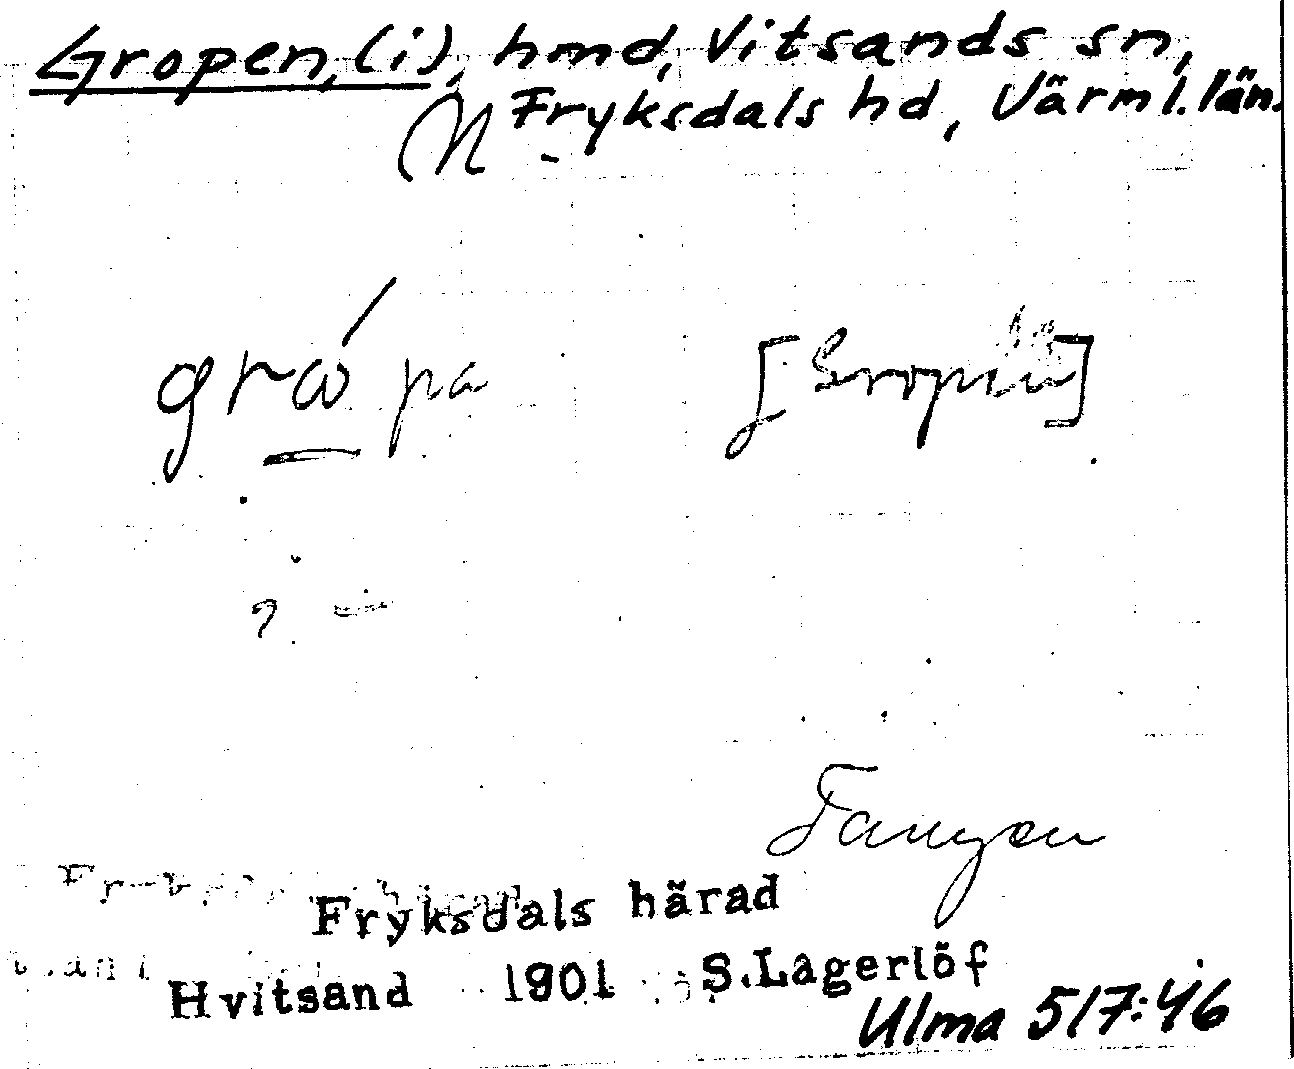 Gropen, (i), hmd, Vitsands sn,
Fryksdals hd, Värml. län.
grópa
Tangen
Fryksdals härad
Hvitsand 1901 S. Lagerlöf
Ulma 517:46